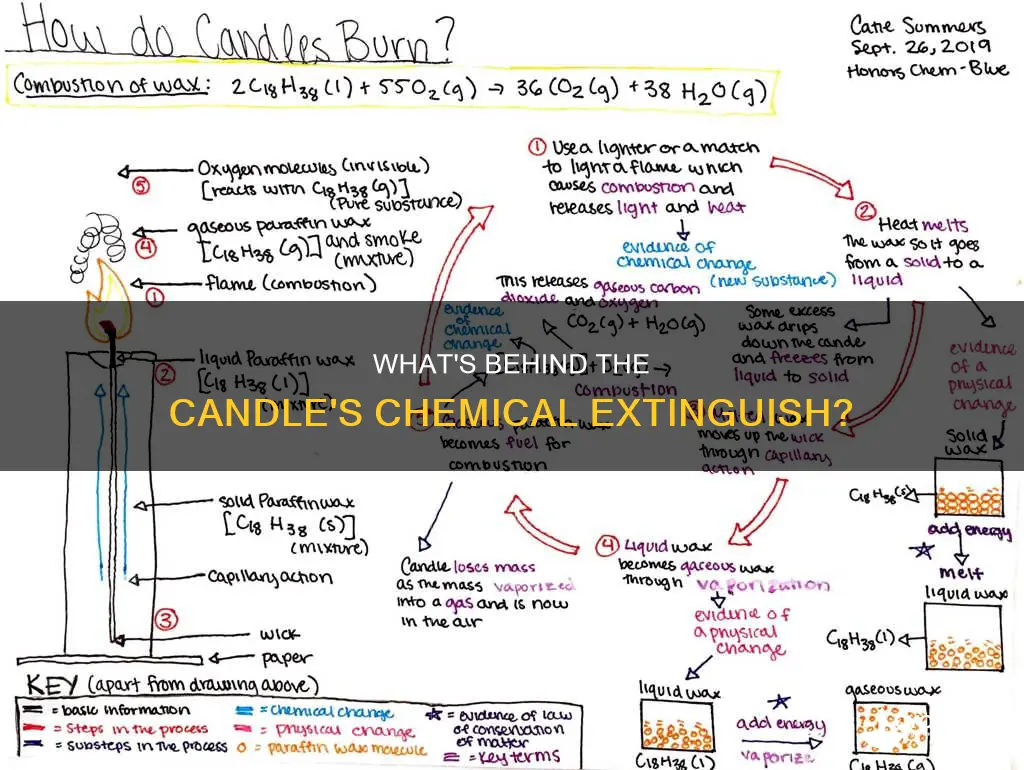 How do Candles Burn?
Catie Summers
Sept. 26, 2019
Honors Chem-Blue
Combustion of wax: 2C18H38(l) + 55O2(g) → 36CO2(g) + 38H2O(g)
Oxygen molecules (invisible)
[reacts with C18H38(g)]
(Pure substance)
⑤
gaseous paraffin wax
[C18H38(g)] and smoke
(mixture)
④
flame (combustion)
①
liquid Paraffin wax
[C18H38(l)]
②
solid Paraffin wax
[C18H38(s)]
(mixture)
capillary action
③
wick
paper
① Use a lighter or a match
to light a flame which
causes combustion and
releases light and heat
evidence of
chemical change
(new substance)
②
Heat melts
the wax so it goes
from a solid to a
liquid
This releases gaseous carbon
dioxide and oxygen
CO2(g) + H2O(g)
evidence
of
chemical
change
combustion
Some excess
wax drips
down the candle
and freezes from
liquid to solid
evidence
of a
physical
change
WHAT'S BEHIND THE
CANDLE'S CHEMICAL EXTINGUISH?
becomes fuel for
combustion
moves up the wick
through capillary
action
④ Liquid wax
becomes gaseous wax
through vaporization
evidence of
a physical
change
Candle loses mass
as the mass vaporized
into a gas and is now
in the air
solid
wax
C18H38(s)
add energy
melt
liquid wax
C18H38(l)
liquid wax
C18H38(l)
add energy
vaporize
gaseous wax
C18H38(g)
KEY (apart from drawing above)
= basic information
= Steps in the process
= substeps in the process
= chemical change
= physical change
= paraffin wax molecule
= evidence of law
of conservation
of matter
= key terms